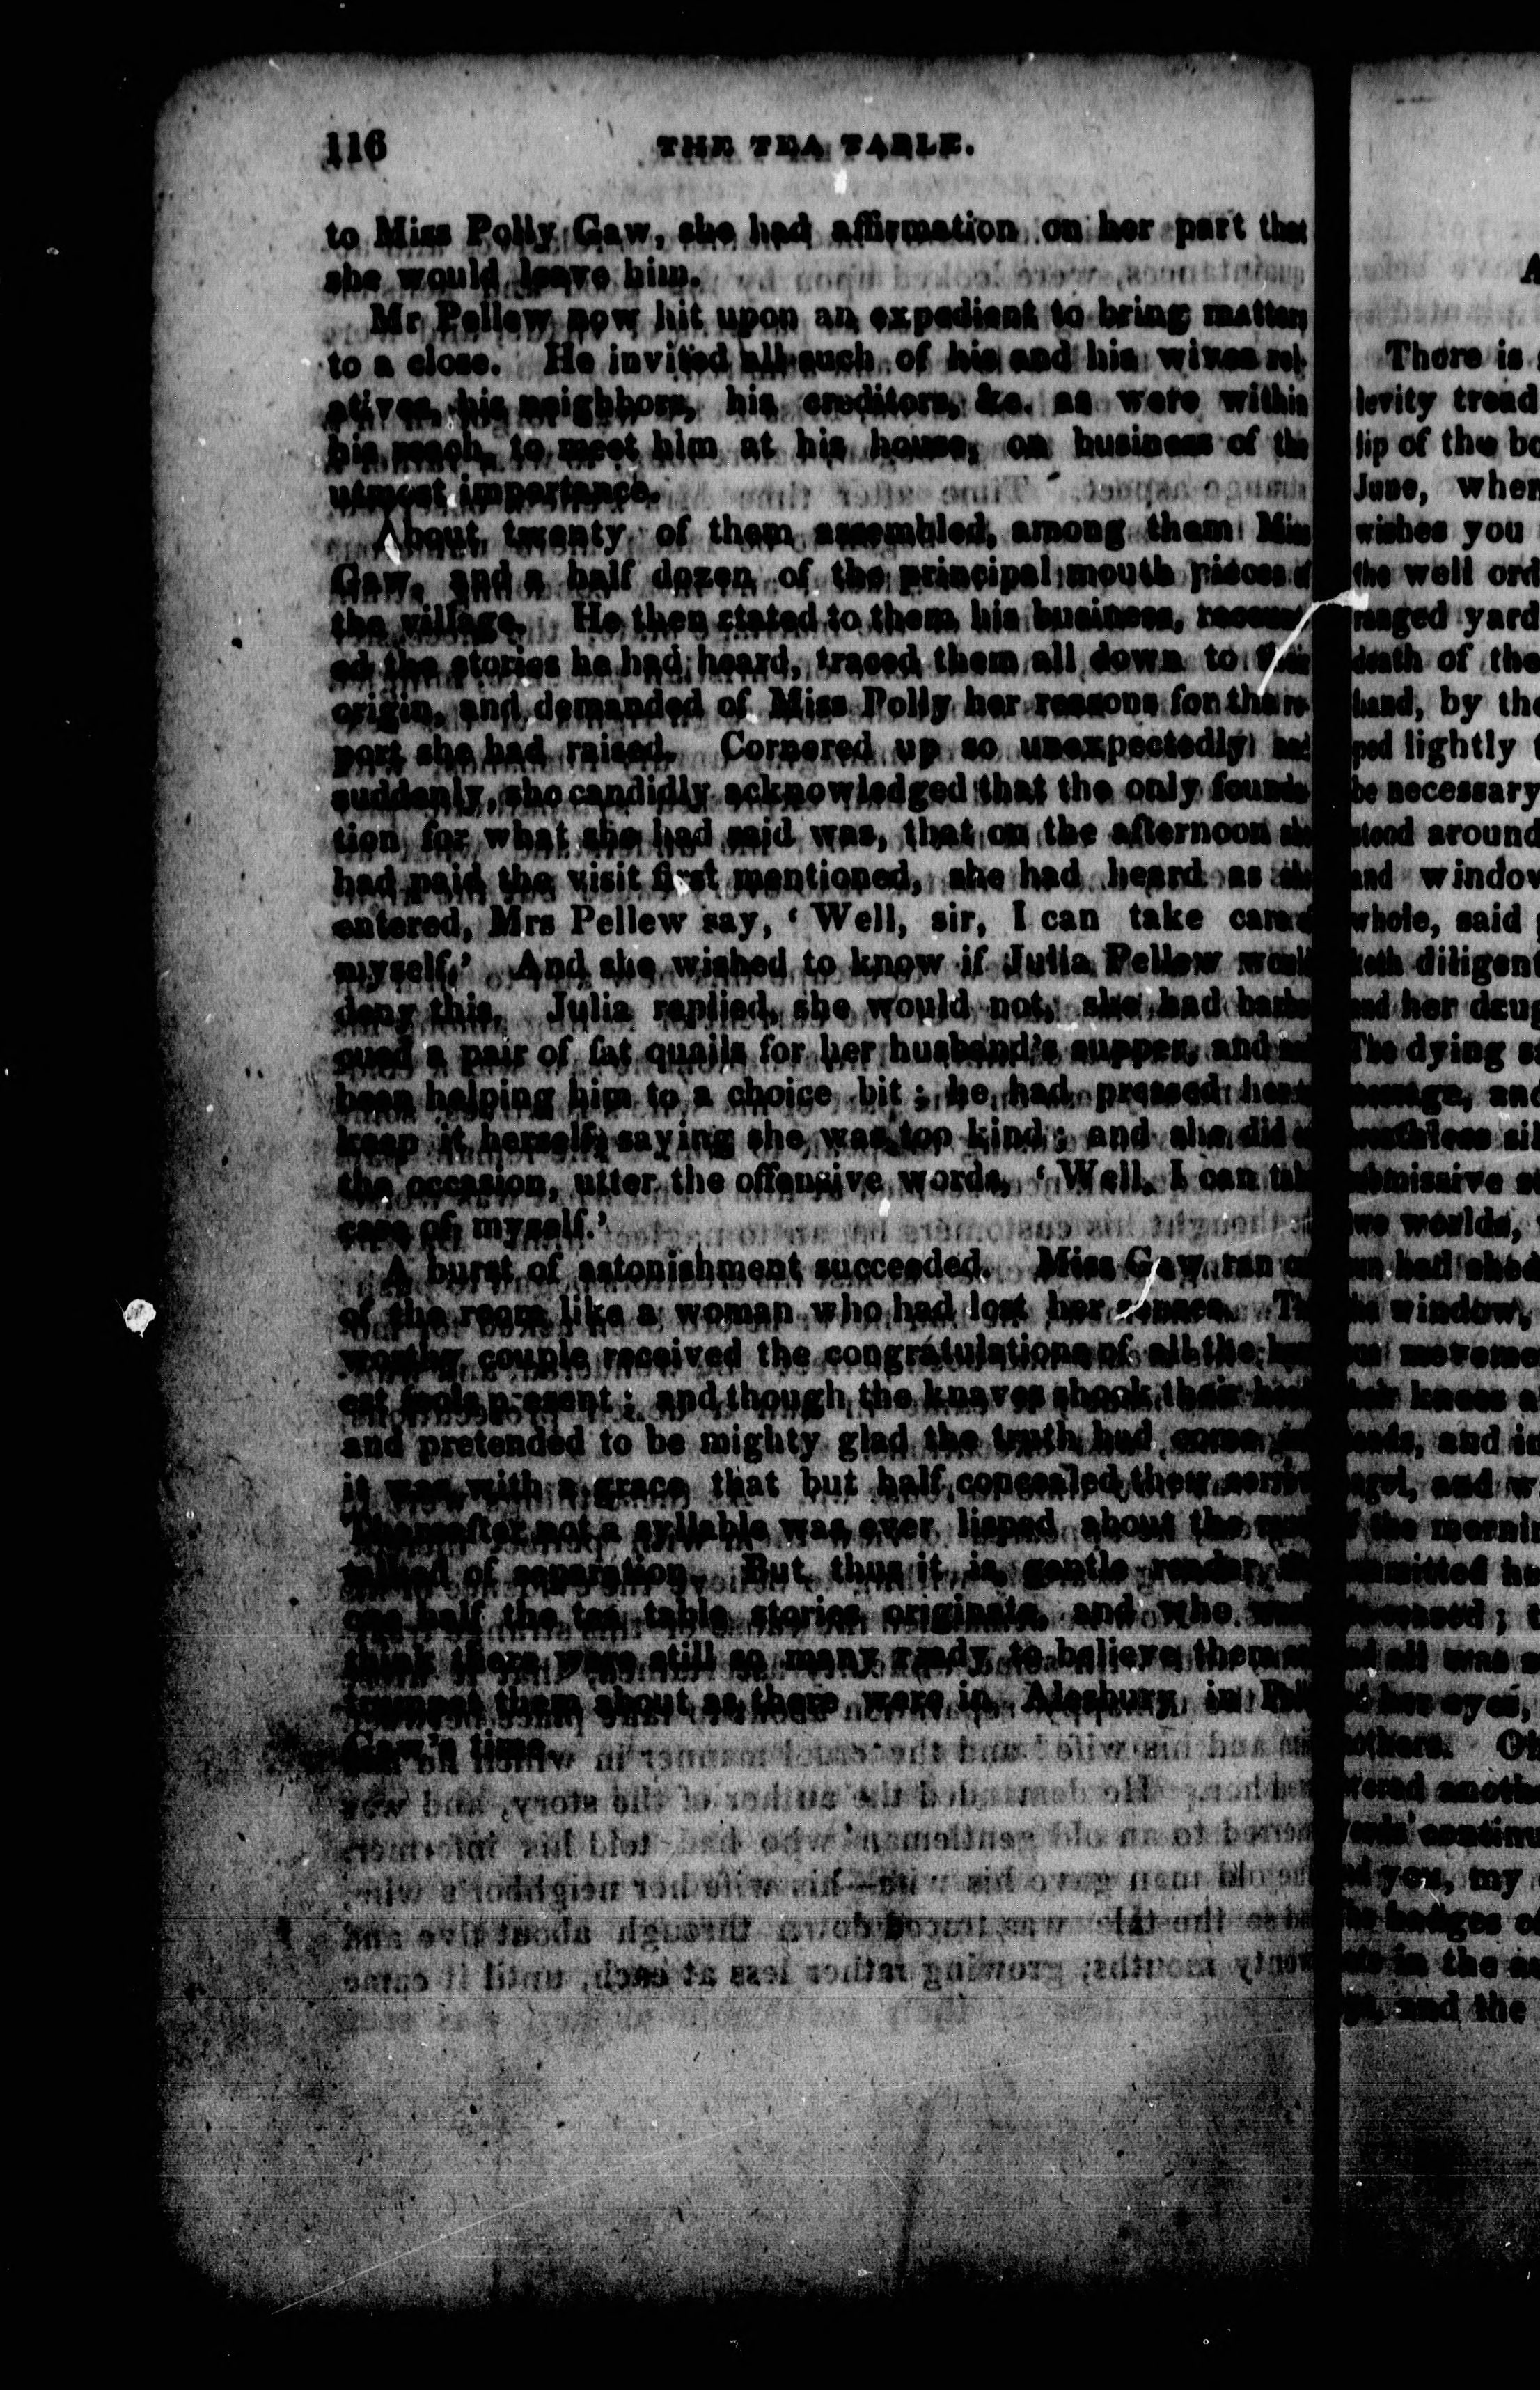 116
THE TEA TABLE.
to Miss Polly Gaw, she had affirmation on her part that
she would leave him.
Mr Pellew now hit upon an expedient to bring matters
to a close. He invited all such of his and his wives rel-
atives, his neighbors, his creditors, &c. as were within
his reach, to meet him at his house, on business of the
utmost importance.
About twenty of them assembled, among them Miss
Gaw, and a half dozen of the principal mouth pieces of
the village. He then stated to them his business, recount-
ed the stories he had heard, traced them all down to their
origin, and demanded of Miss Polly her reasons for the re-
port she had raised. Cornered up so unexpectedly and
suddenly, she candidly acknowledged that the only founda-
tion for what she had said was, that on the afternoon she
had paid the visit first mentioned, she had heard as she
entered, Mrs Pellew say, ‘Well, sir, I can take care of
myself.’ And she wished to know if Julia Pellew would
deny this. Julia replied, she would not; she had barbe-
cued a pair of fat quails for her husband's supper, and had
been helping him to a choice bit; he had pressed her to
keep it herself, saying she was too kind; and she did on
the occasion, utter the offensive words, ‘Well, I can take
care of myself.’
A burst of astonishment succeeded. Miss Gaw ran out
of the room like a woman who had lost her senses. The
worthy couple received the congratulations of all the hon-
est fools present; and though the knaves shook their
and pretended to be mighty glad the truth had come
it was with a grace that but half concealed their
Thereafter not a syllable was ever lisped about the
talked of separation. But thus it is, gentle reader,
one half the tea table stories originate, and who would
think there were still so many ready to believe them
trumpet them about as there were in Alesbury in Polly
Gaw's time.
There is
levity tread
lip of the
June, when
wishes you
the well
ranged yard
death of the
hand, by the
ped lightly
be necessary
stood around
and
whole, said
diligent
and her
The dying
and
submissive
two worlds,
window,
knees
and
the
all was
her eyes,
you, my
in the
and the